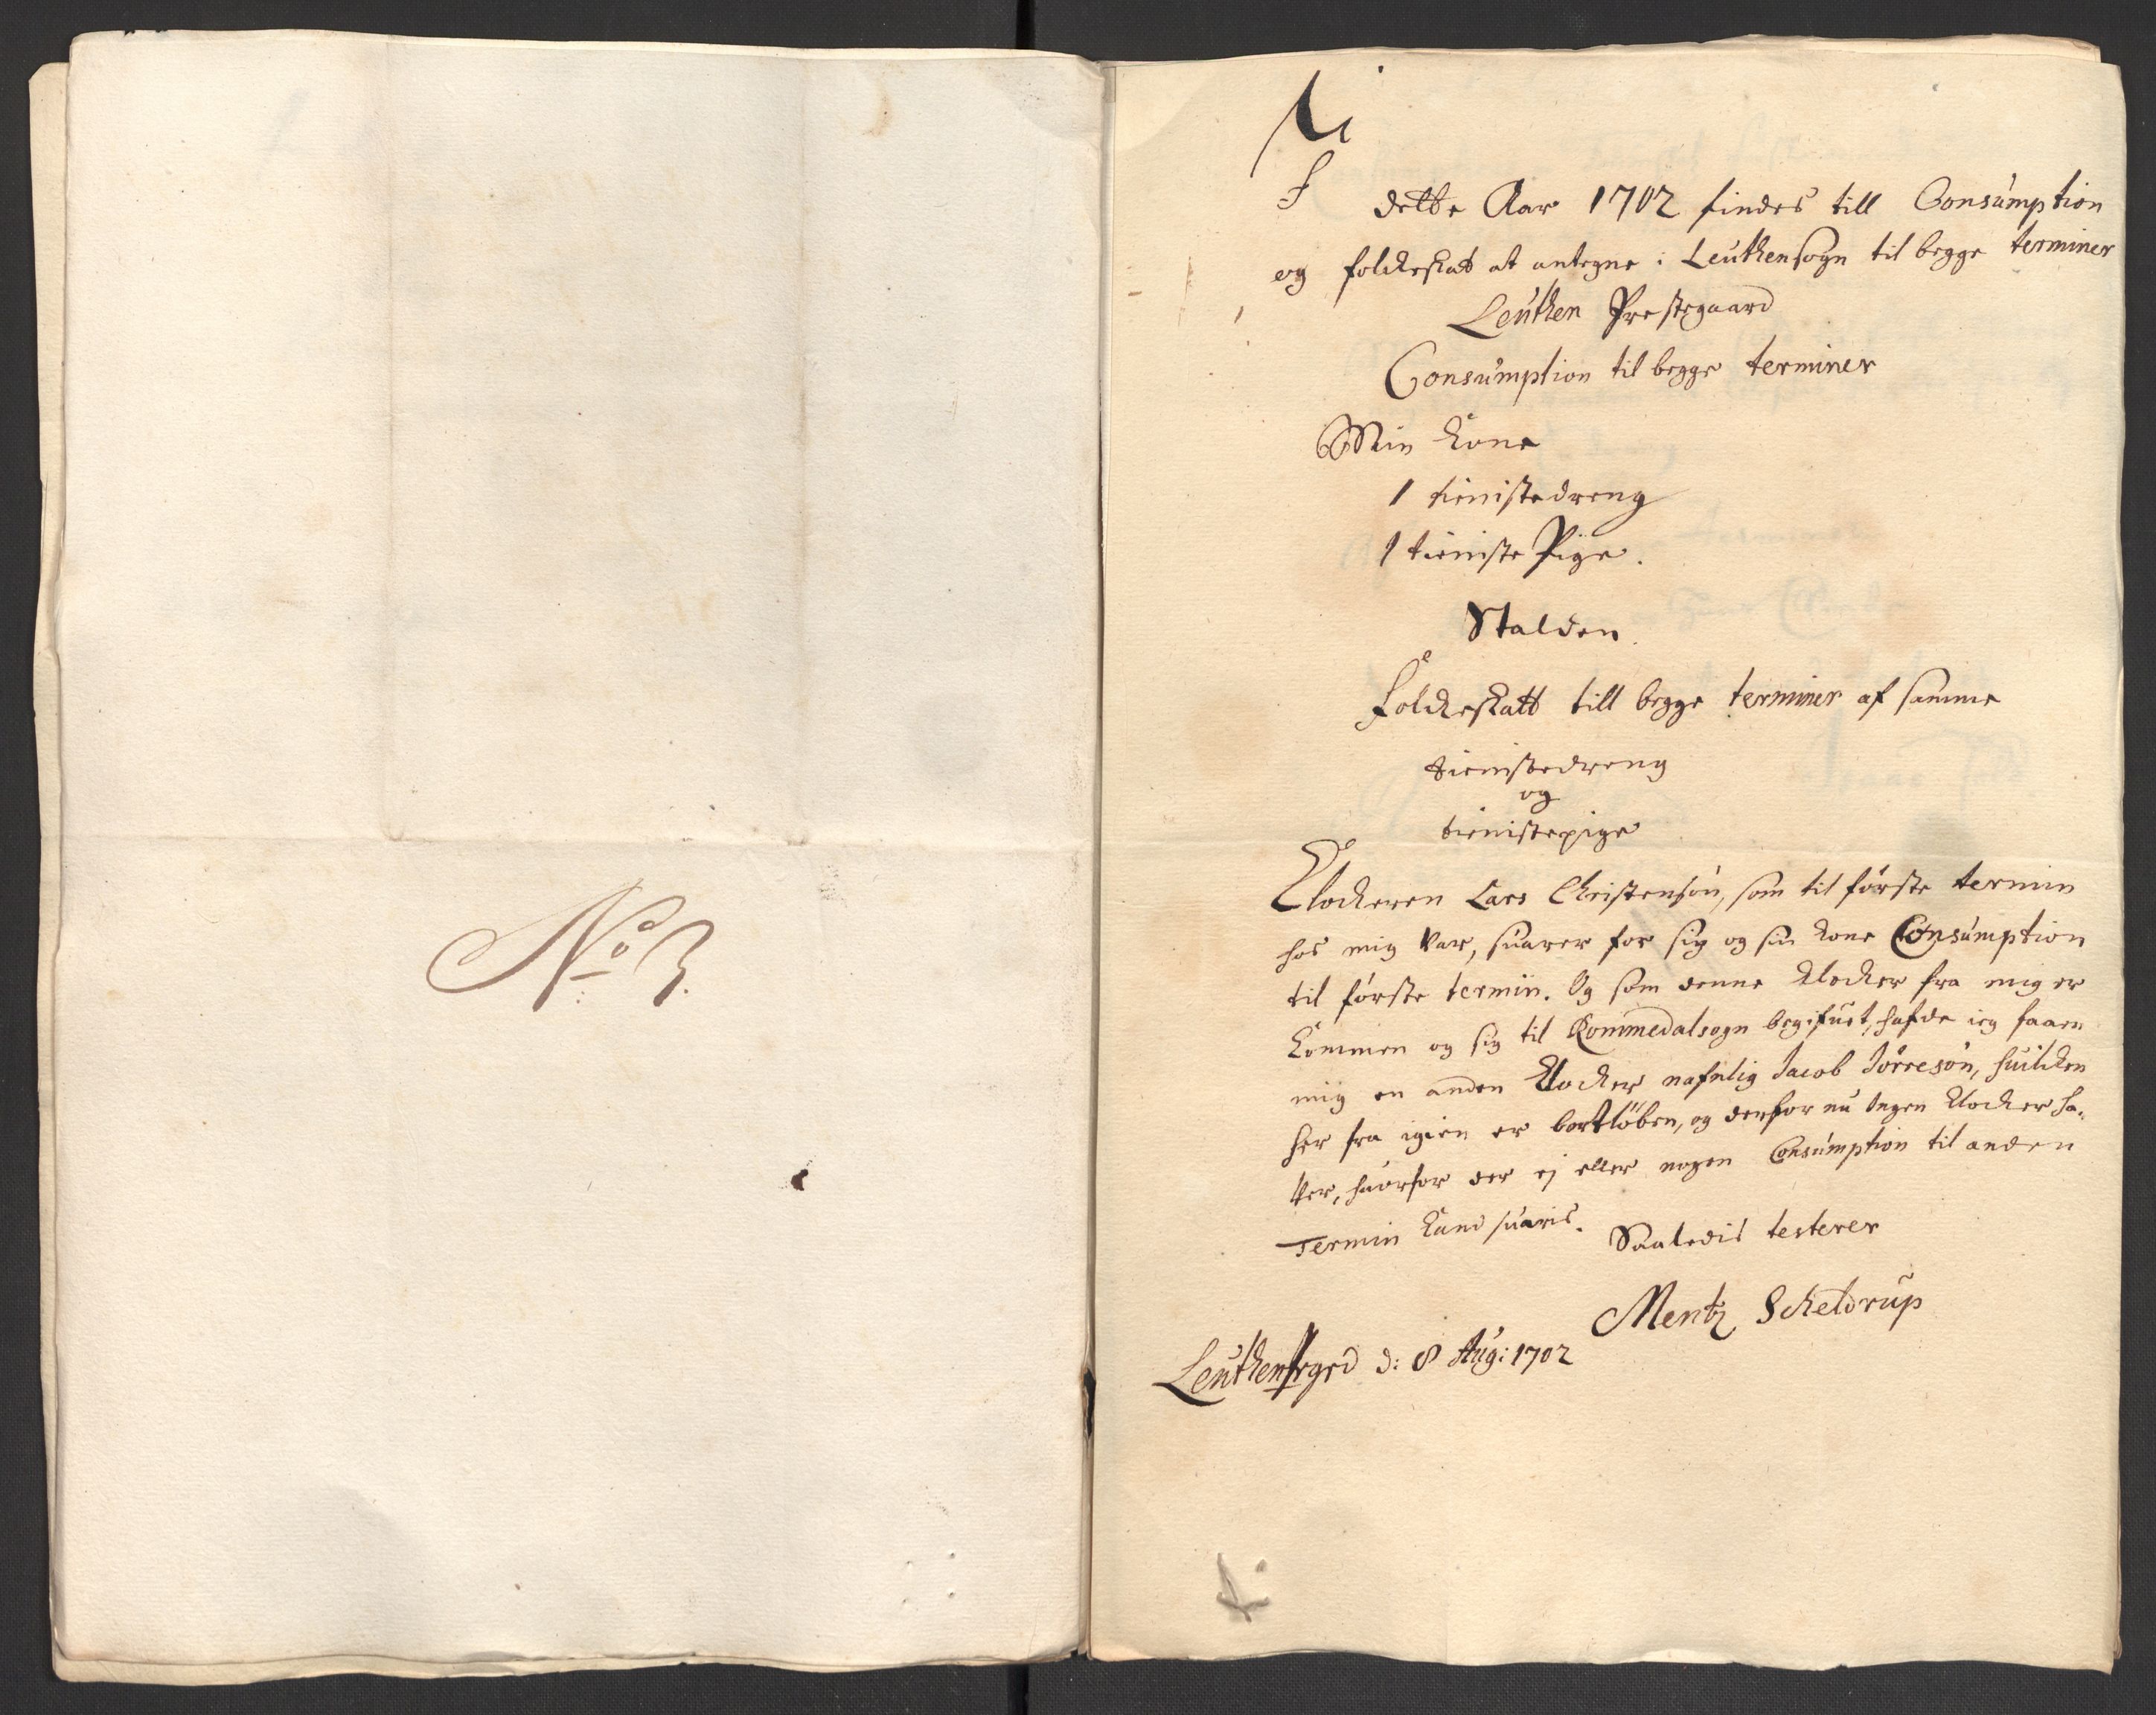 No 3.
I dette Aar 1702 findes till Consumption
og folckeskat at antegne i Leuthensogn til begge terminer
Leuthen Prestegaard
Consumption til begge terminer
Min Kone
1 tienistedreng
1 tieniste Pige.
Stalden.
Folckeskatt till begge terminer af samme
tienistedreng
og
tienistepige
Klockeren Lars Christensøn, som til første termin
hos mig var, suarer for sig og sin Kone Consumption
til første termin. Og som denne Klocker fra mig er
kommen og sig til Rommedalsogn begifuet, hafde ieg faaen
mig en anden Klocker nafnlig Jacob Jörresøn, huilcken
her fra igien er bortløben, og derfor nu Ingen Klocker ha-
fuer, huorfor der ej eller nogen Consumption til anden
Termin kand suaris.
Saaledis testerer
Mentz Scheldrup
Leuthen Prgrd d: 8 Aug: 1702